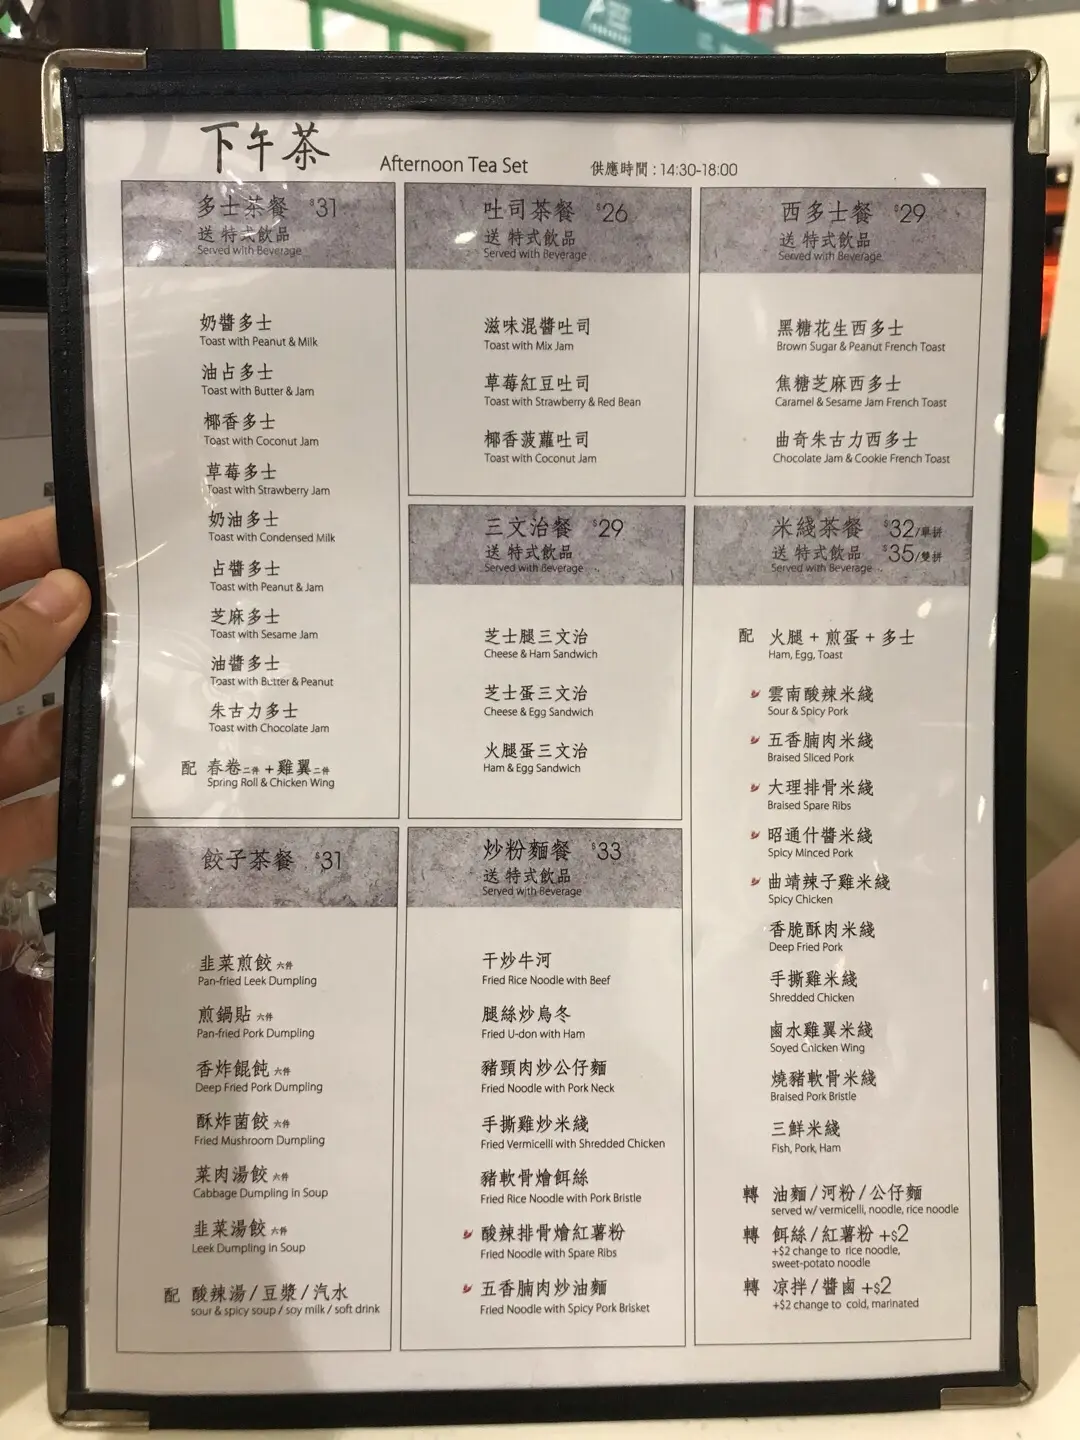 下午茶
Afternoon Tea Set
供應時間 : 14:30-18:00
多士茶餐 $31
送 特式飲品
Served with Beverage
奶醬多士
Toast with Peanut & Milk
油占多士
Toast with Butter & Jam
椰香多士
Toast with Coconut Jam
草莓多士
Toast with Strawberry Jam
奶油多士
Toast with Condensed Milk
占醬多士
Toast with Peanut & Jam
芝麻多士
Toast with Sesame Jam
油醬多士
Toast with Butter & Peanut
朱古力多士
Toast with Chocolate Jam
配 春卷二件 + 雞翼二件
Spring Roll & Chicken Wing
吐司茶餐 $26
送 特式飲品
Served with Beverage
滋味混醬吐司
Toast with Mix Jam
草莓紅豆吐司
Toast with Strawberry & Red Bean
椰香菠蘿吐司
Toast with Coconut Jam
西多士餐 $29
送 特式飲品
Served with Beverage
黑糖花生西多士
Brown Sugar & Peanut French Toast
焦糖芝麻西多士
Caramel & Sesame Jam French Toast
曲奇朱古力西多士
Chocolate Jam & Cookie French Toast
三文治餐 $29
送 特式飲品
Served with Beverage
芝士腿三文治
Cheese & Ham Sandwich
芝士蛋三文治
Cheese & Egg Sandwich
火腿蛋三文治
Ham & Egg Sandwich
米綫茶餐 $32/單餅
送 特式飲品 $35/雙餅
Served with Beverage
配 火腿 + 煎蛋 + 多士
Ham, Egg, Toast
雲南酸辣米綫
Sour & Spicy Pork
五香腩肉米綫
Braised Sliced Pork
大理排骨米綫
Braised Spare Ribs
昭通什醬米綫
Spicy Minced Pork
曲靖辣子雞米綫
Spicy Chicken
香脆酥肉米綫
Deep Fried Pork
手撕雞米綫
Shredded Chicken
鹵水雞翼米綫
Soyed Chicken Wing
燒豬軟骨米綫
Braised Pork Bristle
三鮮米綫
Fish, Pork, Ham
轉 油麵 / 河粉 / 公仔麵
served w/ vermicelli, noodle, rice noodle
轉 餌絲 / 紅薯粉 +$2
+$2 change to rice noodle,
sweet-potato noodle
轉 凉拌 / 醬鹵 +$2
+$2 change to cold, marinated
餃子茶餐 $31
韭菜煎餃 六件
Pan-fried Leek Dumpling
煎鍋貼 六件
Pan-fried Pork Dumpling
香炸餛飩 六件
Deep Fried Pork Dumpling
酥炸菌餃 六件
Fried Mushroom Dumpling
菜肉湯餃 六件
Cabbage Dumpling in Soup
韭菜湯餃 六件
Leek Dumpling in Soup
配 酸辣湯 / 豆漿 / 汽水
sour & spicy soup / soy milk / soft drink
炒粉麵餐 $33
送 特式飲品
Served with Beverage
干炒牛河
Fried Rice Noodle with Beef
腿絲炒烏冬
Fried U-don with Ham
豬頸肉炒公仔麵
Fried Noodle with Pork Neck
手撕雞炒米綫
Fried Vermicelli with Shredded Chicken
豬軟骨燴餌絲
Fried Rice Noodle with Pork Bristle
酸辣排骨燴紅薯粉
Fried Noodle with Spare Ribs
五香腩肉炒油麵
Fried Noodle with Spicy Pork Brisket